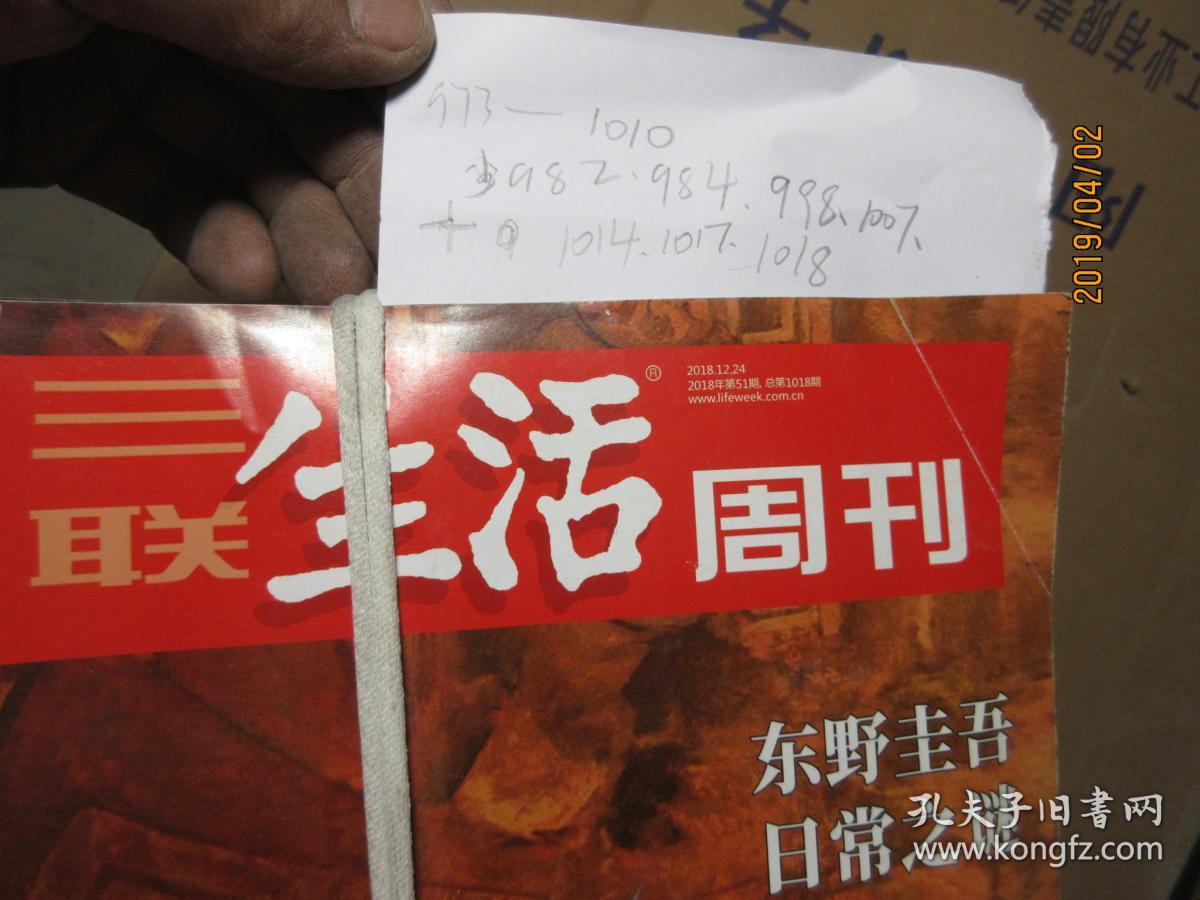 973—1010
少982、984、998、1007、
+ 1014、1017、1018
2019/04/02
三联生活周刊®
2018.12.24
2018年第51期, 总第1018期
www.lifeweek.com.cn
东野圭吾
日常之谜
孔夫子旧書网
www.kongfz.com